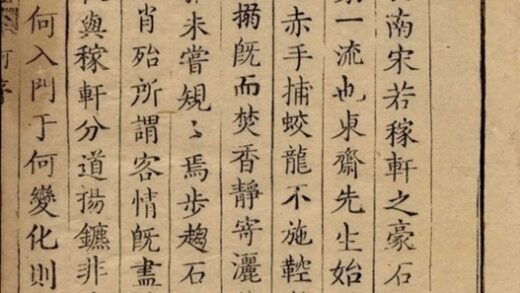 南宋若稼軒之豪石
一流也東齋先生始
赤手捕蛟龍不施鞚
搦既而焚香靜寄灑
未嘗規〻焉步趨石
肖殆所謂客情既盡
與稼軒分道揚鑣非
何入門于何變化則
序